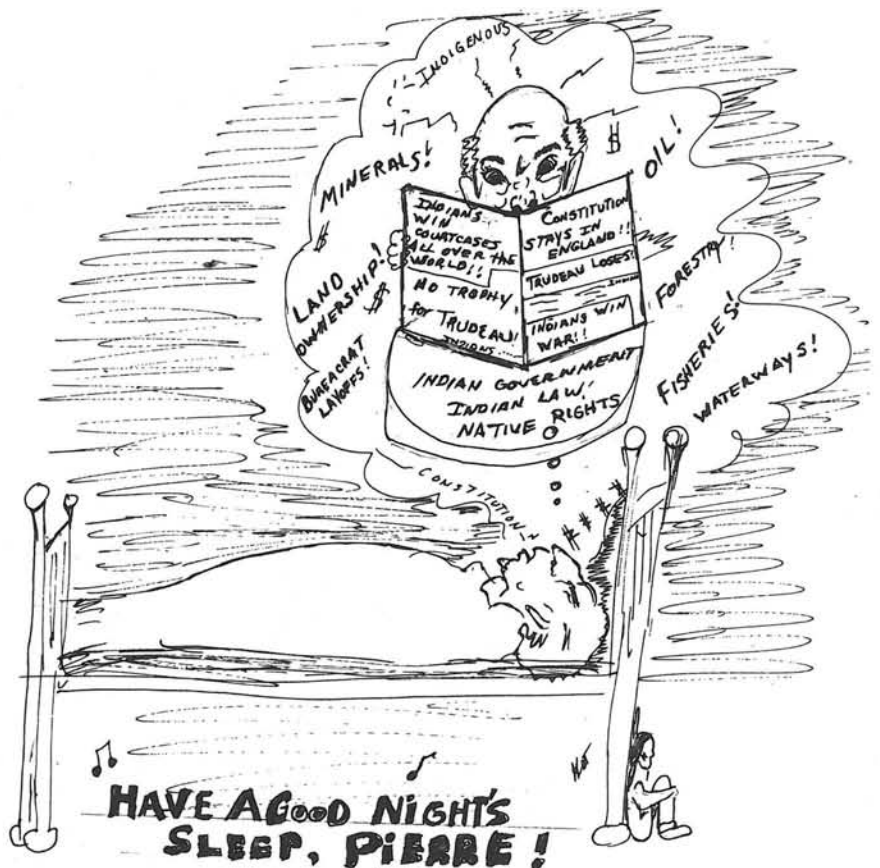 INDIGENOUS
MINERALS!
$
LAND
OWNERSHIP!
$
BUREACRAT
LAYOFFS!
$
OIL!
FORESTRY!
FISHERIES!
WATERWAYS!
INDIANS
WIN
COURTCASES
ALL OVER THE
WORLD!!
NO TROPHY
for TRUDEAU!
INDIANS
CONSTITUTION
STAYS IN
ENGLAND!!
TRUDEAU LOSES!
INDIANS WIN
WAR!!
INDIAN GOVERNMENT
INDIAN LAW!
NATIVE RIGHTS
CONSTITUTION
$ $ $ $ $
HAVE A GOOD NIGHT'S
SLEEP, PIERRE!